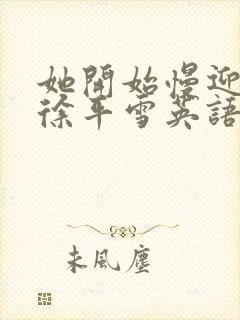 她開始慢迎
徐平雪英語
未風塵